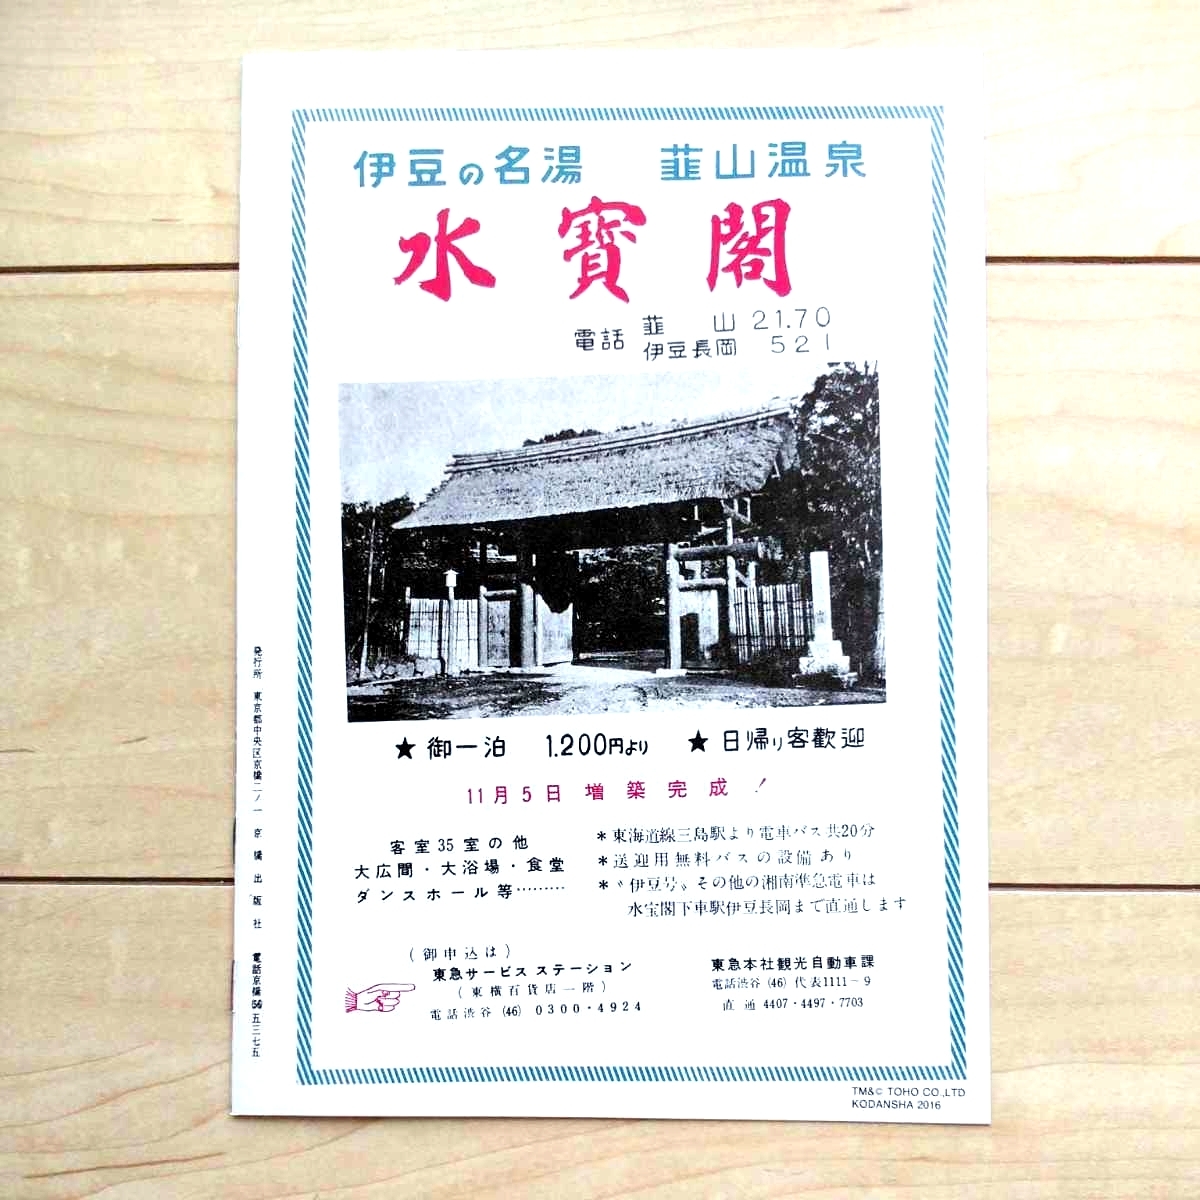 伊豆の名湯　韮山温泉
水寳閣
電話 韮山 21.70
伊豆長岡 521
★ 御一泊 1.200円より ★ 日帰り客歡迎
11月5日 増築完成！
客室35室の他
大広間・大浴場・食堂
ダンスホール等………
＊東海道線三島駅より電車バス共20分
＊送迎用無料バスの設備あり
＊〝伊豆号〟その他の湘南準急電車は
水宝閣下車駅伊豆長岡まで直通します
(御申込は)
東急サービスステーション
(東横百貨店一階)
電話渋谷 (46) 0300・4924
東急本社観光自動車課
電話渋谷 (46) 代表1111～9
直通 4407・4497・7703
発行所 東京都中央区京橋二ノ一 京橋出版社 電話京橋56五三七五
TM&© TOHO CO.,LTD
KODANSHA 2016